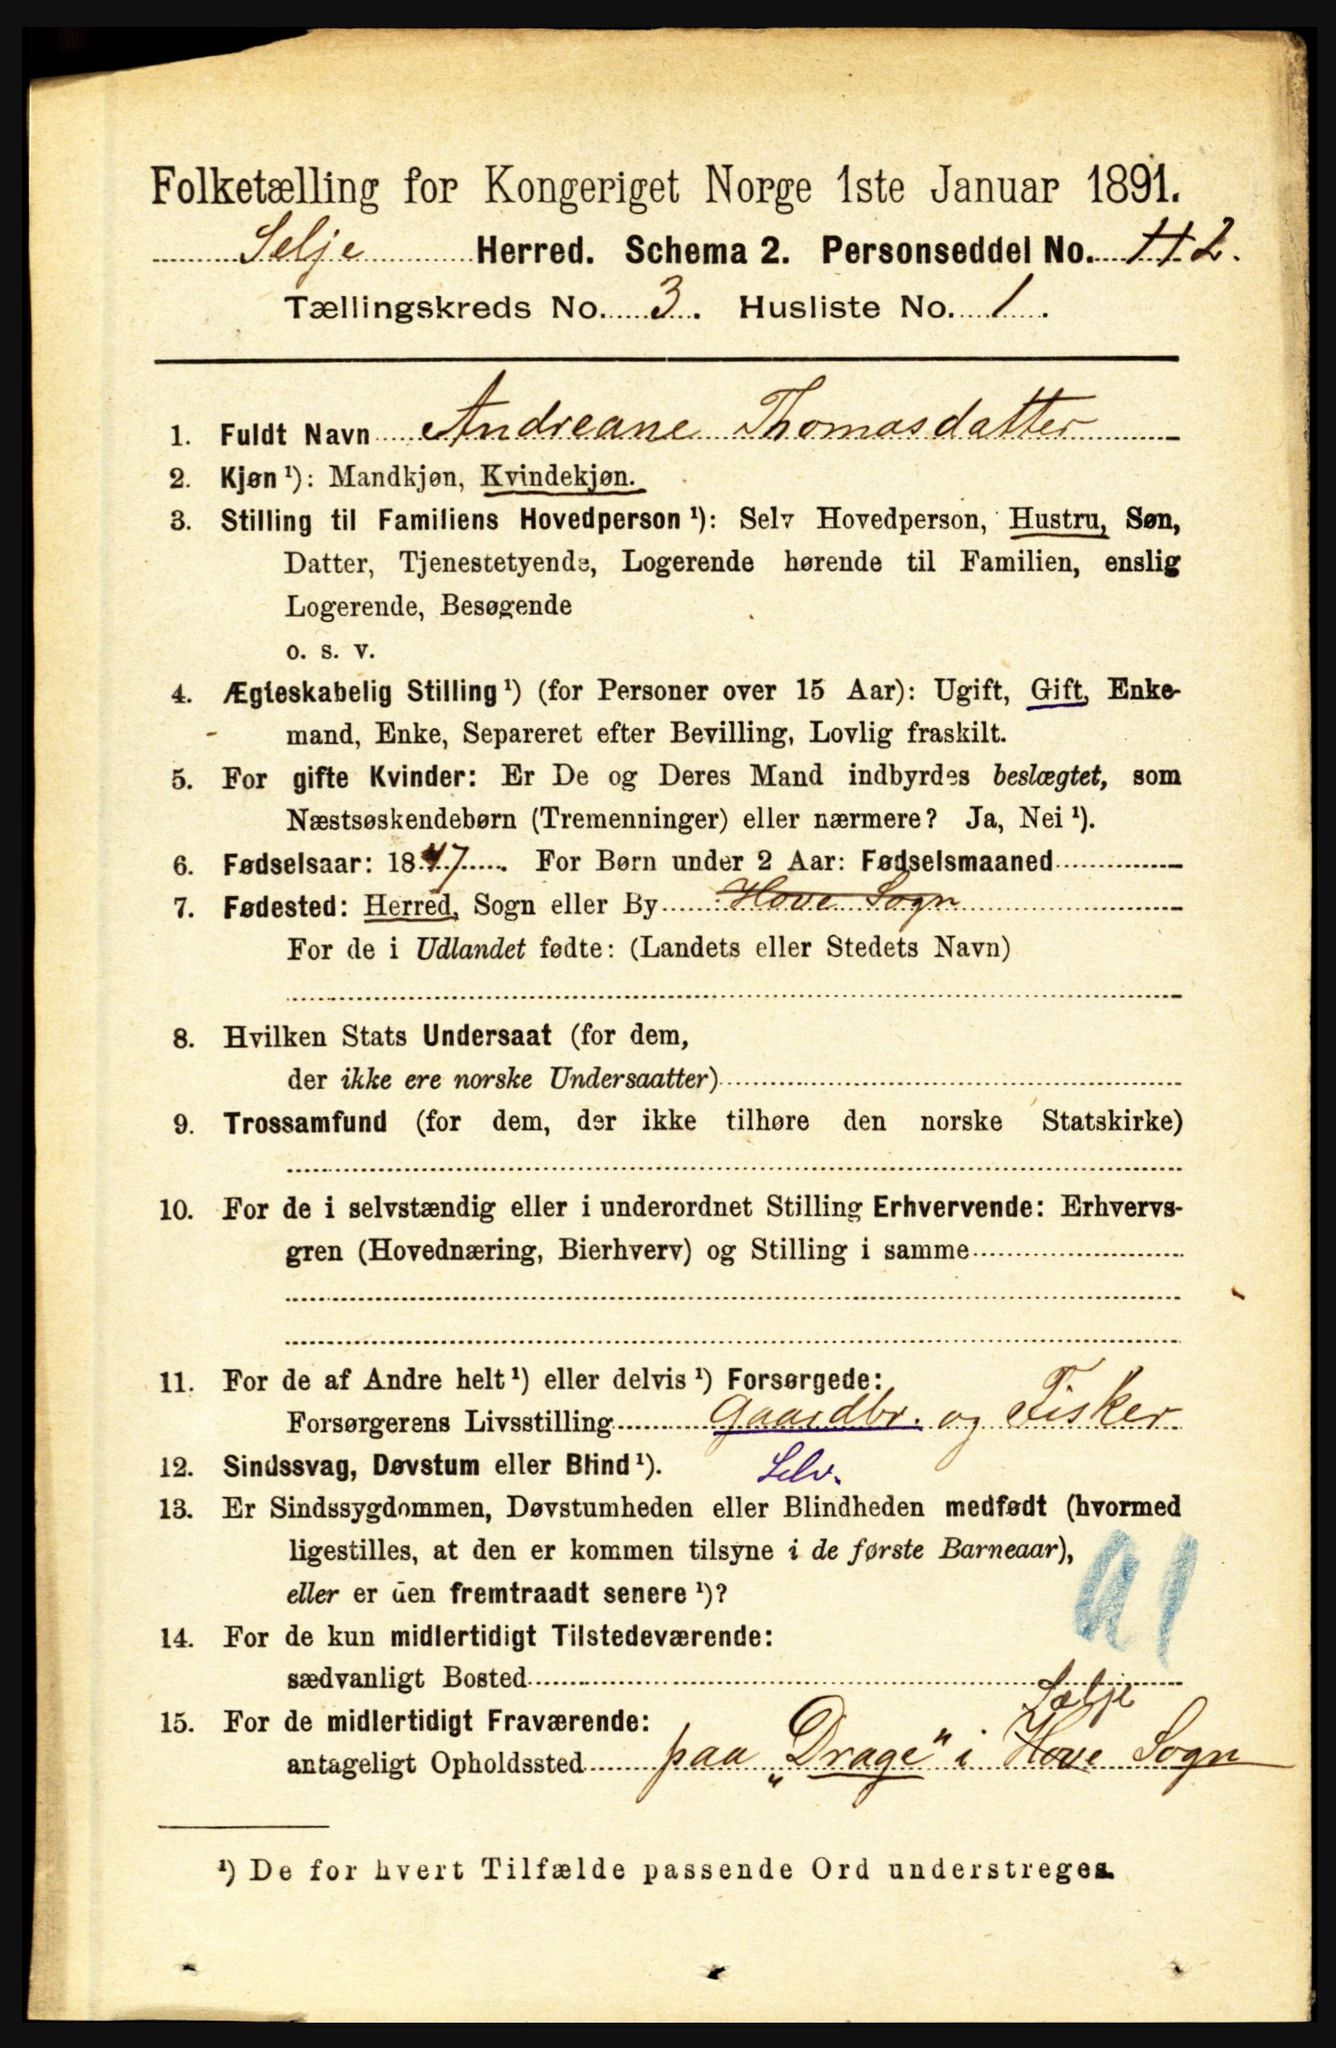 Folketælling for Kongeriget Norge 1ste Januar 1891.
Selje Herred. Schema 2. Personseddel No. 112.
Tællingskreds No. 3. Husliste No. 1.
1. Fuldt Navn Andreane Thomasdatter
2. Kjøn¹): Mandkjøn, Kvindekjøn.
3. Stilling til Familiens Hovedperson¹): Selv Hovedperson, Hustru, Søn,
Datter, Tjenestetyende, Logerende hørende til Familien, enslig
Logerende, Besøgende
o. s. v.
4. Ægteskabelig Stilling¹) (for Personer over 15 Aar): Ugift, Gift, Enke-
mand, Enke, Separeret efter Bevilling, Lovlig fraskilt.
5. For gifte Kvinder: Er De og Deres Mand indbyrdes beslægtet, som
Næstsøskendebørn (Tremenninger) eller nærmere? Ja, Nei¹).
6. Fødselsaar: 1847. For Børn under 2 Aar: Fødselsmaaned
7. Fødested: Herred, Sogn eller By Hove Sogn
For de i Udlandet fødte: (Landets eller Stedets Navn)
8. Hvilken Stats Undersaat (for dem,
der ikke ere norske Undersaatter)
9. Trossamfund (for dem, der ikke tilhøre den norske Statskirke)
10. For de i selvstændig eller i underordnet Stilling Erhvervende: Erhvervs-
gren (Hovednæring, Bierhverv) og Stilling i samme
11. For de af Andre helt¹) eller delvis¹) Forsørgede:
Forsørgerens Livsstilling Gaardbr. og Fisker
12. Sindssvag, Døvstum eller Blind¹). Selv.
13. Er Sindssygdommen, Døvstumheden eller Blindheden medfødt (hvormed
ligestilles, at den er kommen tilsyne i de første Barneaar),
eller er den fremtraadt senere¹)?
14. For de kun midlertidigt Tilstedeværende:
sædvanligt Bosted
15. For de midlertidigt Fraværende: Selje
antageligt Opholdssted paa „Drage" i Hove Sogn
¹) De for hvert Tilfælde passende Ord understreges.